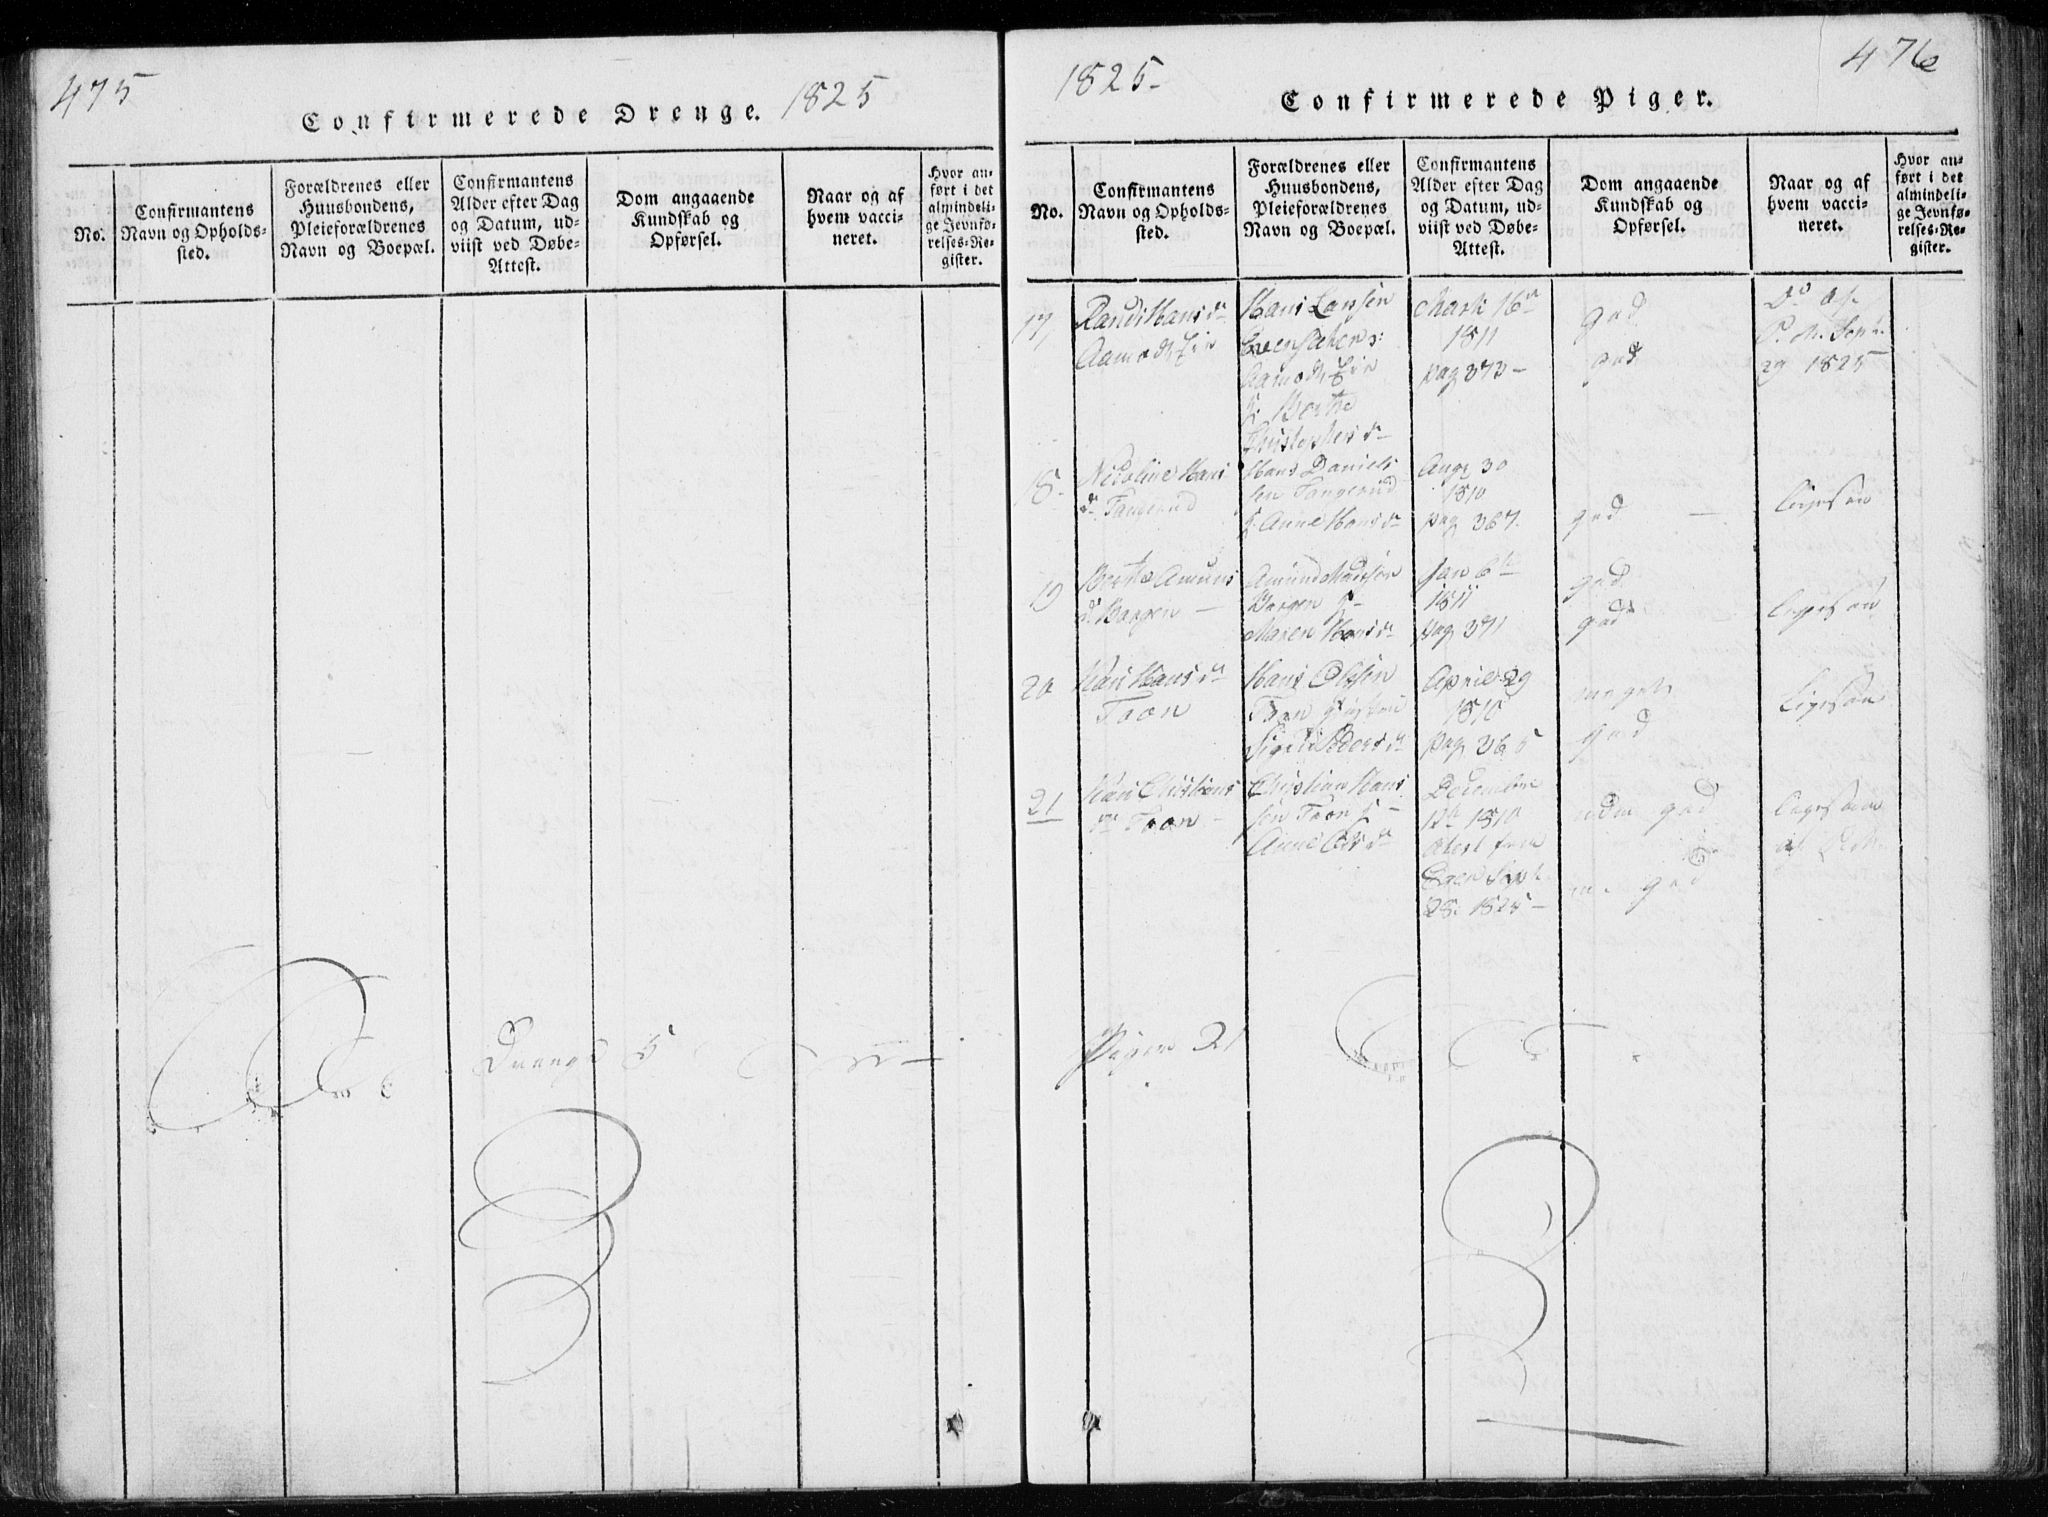 475
Confirmerede Drenge. 1825
No.
Confirmantens
Navn og Opholds-
sted.
Forældrenes eller
Huusbondens,
Pleieforældrenes
Navn og Boepæl.
Confirmantens
Alder efter Dag
og Datum, ud-
viist ved Døbe-
Attest.
Dom angaaende
Kundskab og
Opførsel.
Naar og af
hvem vacci-
neret.
Hvor an-
ført i det
almindeli-
ge Jevnfø-
relses-Re-
gister.
Drenge 5
1825-
476
Confirmerede Piger.
No.
Confirmantens
Navn og Opholds-
sted.
Forældrenes eller
Huusbondens,
Pleieforældrenes
Navn og Boepæl.
Confirmantens
Alder efter Dag
og Datum, ud-
viist ved Døbe-
Attest.
Dom angaaende
Kundskab og
Opførsel.
Naar og af
hvem vacci-
neret.
Hvor an-
ført i det
almindeli-
ge Jevnfø-
relses-Re-
gister.
17
Randi Hans dr
Aamodt
Hans Larsen
Aamodt
Berthe
Christophers dr
Marti 16
1811
pag 373-
god
god
Do af
P. M. Sept.
29 1825
18
Nicoline Hans
dr Tangerud
Hans Daniels
sen Tangerud
& Anne Hans dr
Aug 30
1810
pag 367.
god
Ligesaa
19
Berthe Amuns
dr Borgen -
Amund Madsøn
Borgen & -
Maren Hans dr
Jan 6
1811
pag 371
god
god
Ligesaa
20
Kari Hans dr
Toon
Hans Olsen
Toon
Sigri Peders dr
April 29
1810
pag 365
god
Ligesaa
21
Kari Christians
dr Toon -
Christian Hans
sen Toon & -
Anne Ols dr
December
12 1810
Attest fra
Sept.
28. 1825 -
god
god
Ligesaa
af
Piger 21